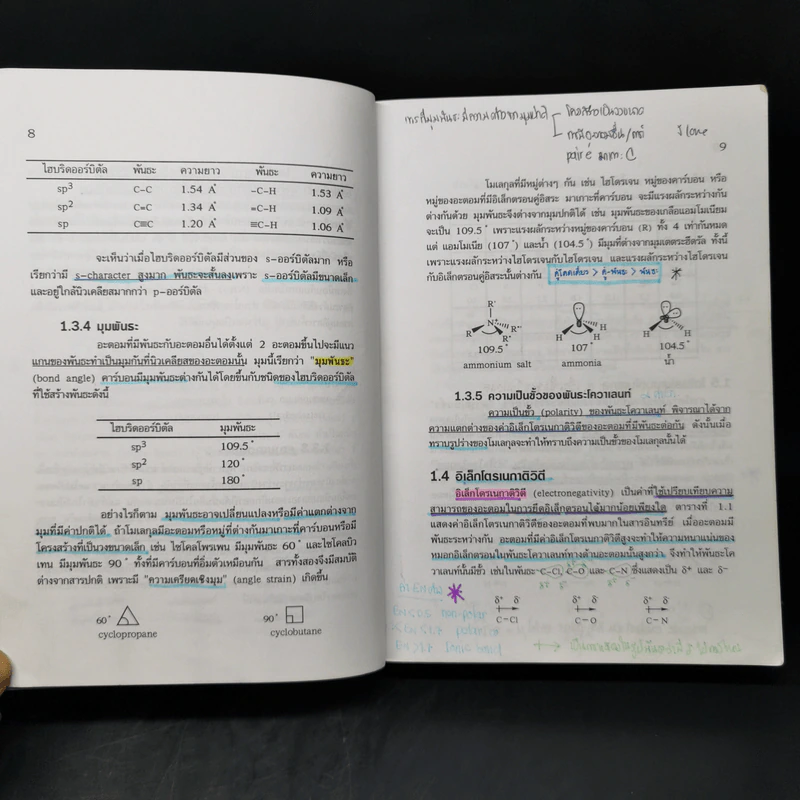 8
ไฮบริดออร์บิตัล พันธะ ความยาว พันธะ ความยาว
sp3 C-C 1.54 A° -C-H 1.53 A°
sp2 C=C 1.34 A° =C-H 1.09 A°
sp C≡C 1.20 A° ≡C-H 1.06 A°
จะเห็นว่าเมื่อไฮบริดออร์บิตัลมีส่วนของ s-ออร์บิตัลมาก หรือ
เรียกว่ามี s-character สูงมาก พันธะจะสั้นลงเพราะ s-ออร์บิตัลมีขนาดเล็ก
และอยู่ใกล้นิวเคลียสมากกว่า p-ออร์บิตัล
1.3.4 มุมพันธะ
อะตอมที่มีพันธะกับอะตอมอื่นได้ตั้งแต่ 2 อะตอมขึ้นไปจะมีแนว
แกนของพันธะทำเป็นมุมกันที่นิวเคลียสของอะตอมนั้น มุมนี้เรียกว่า "มุมพันธะ"
(bond angle) คาร์บอนมีมุมพันธะต่างกันได้โดยขึ้นกับชนิดของไฮบริดออร์บิตัล
ที่ใช้สร้างพันธะดังนี้
ไฮบริดออร์บิตัล มุมพันธะ
sp3 109.5°
sp2 120°
sp 180°
อย่างไรก็ตาม มุมพันธะอาจเปลี่ยนแปลงหรือมีค่าแตกต่างจาก
มุมที่มีค่าปกติได้ ถ้าโมเลกุลมีอะตอมหรือหมู่ที่ต่างกันมาเกาะที่คาร์บอนหรือมี
โครงสร้างที่เป็นวงขนาดเล็ก เช่น ไซโคลโพรเพน มีมุมพันธะ 60° และไซโคลบิว
เทน มีมุมพันธะ 90° ทั้งที่มีคาร์บอนที่อิ่มตัวเหมือนกัน สารทั้งสองจึงมีสมบัติ
ต่างจากสารปกติ เพราะมี "ความเครียดเชิงมุม" (angle strain) เกิดขึ้น
60° 90°
cyclopropane cyclobutane
9
โมเลกุลที่มีหมู่ต่างๆ กัน เช่น ไฮโดรเจน หมู่ของคาร์บอน หรือ
หมู่ของอะตอมที่มีอิเล็กตรอนคู่อิสระ มาเกาะที่คาร์บอน จะมีแรงผลักระหว่างกัน
ต่างกันด้วย มุมพันธะจึงต่างจากมุมปกติได้ เช่น มุมพันธะของเกลือแอมโมเนียม
จะเป็น 109.5° เพราะแรงผลักระหว่างหมู่ของคาร์บอน (R) ทั้ง 4 เท่ากันหมด
แต่ แอมโมเนีย (107°) และน้ำ (104.5°) มีมุมที่ต่างจากมุมเตตระฮีดรัล ทั้งนี้
เพราะแรงผลักระหว่างไฮโดรเจนกับไฮโดรเจน และแรงผลักระหว่างไฮโดรเจน
กับอิเล็กตรอนคู่อิสระนั้นต่างกัน คู่โดดเดี่ยว > คู่-พันธะ > พันธะ *
109.5° 107° 104.5°
ammonium salt ammonia น้ำ
1.3.5 ความเป็นขั้วของพันธะโควาเลนท์
ความเป็นขั้ว (polarity) ของพันธะโควาเลนท์ พิจารณาได้จาก
ความแตกต่างของค่าอิเล็กโตรเนกาติวิตีของอะตอมที่มีพันธะต่อกัน ดังนั้นเมื่อ
ทราบรูปร่างของโมเลกุลจะทำให้ทราบถึงความเป็นขั้วของโมเลกุลนั้นได้
1.4 อิเล็กโตรเนกาติวิตี
อิเล็กโตรเนกาติวิตี (electronegativity) เป็นค่าที่ใช้เปรียบเทียบความ
สามารถของอะตอมในการยึดอิเล็กตรอนได้มากน้อยเพียงใด ตารางที่ 1.1
แสดงค่าอิเล็กโตรเนกาติวิตีของอะตอมที่พบมากในสารอินทรีย์ เมื่ออะตอมมี
พันธะระหว่างกัน อะตอมที่มีค่าอิเล็กโตรเนกาติวิตีสูงจะทำให้ความหนาแน่นของ
หมอกอิเล็กตรอนในพันธะโควาเลนท์ทางด้านอะตอมนั้นสูงกว่า จึงทำให้พันธะโค
วาเลนท์นั้นมีขั้ว เช่นในพันธะ C-Cl, C-O และ C-N ซึ่งแสดงเป็น δ+ และ δ-
δ+ δ- δ+ δ- δ+ δ-
C-Cl C-O C-N